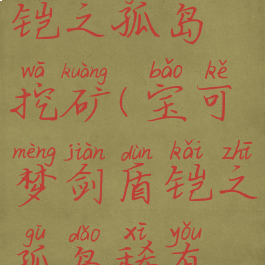 铠之孤岛
wā kuàng bǎo kě
挖矿(宝可
mèng jiàn dùn kǎi zhī
梦剑盾铠之
gū dǎo xī yǒu
孤岛稀有